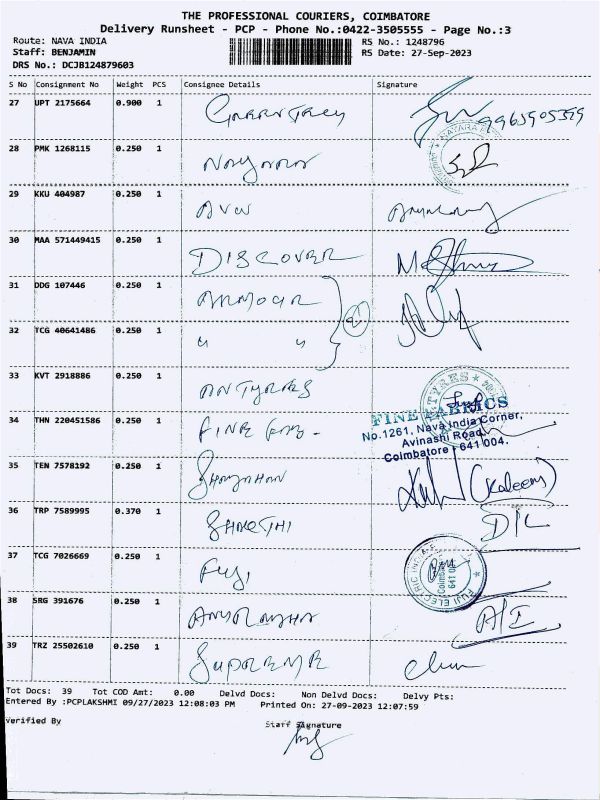 THE PROFESSIONAL COURIERS, COIMBATORE
Delivery Runsheet - PCP - Phone No.:0422-3505555 - Page No.:3
Route: NAVA INDIA RS No.: 1248796
Staff: BENJAMIN RS Date: 27-Sep-2023
DRS No.: DCJB124879603
S No Consignment No Weight PCS Consignee Details Signature
27 UPT 2175664 0.900 1
28 PMK 1268115 0.250 1
29 KKU 404987 0.250 1
30 MAA 571449415 0.250 1 DISCOVER
31 DDG 107446 0.250 1 ARMOUR
32 TCG 40641486 0.250 1 " "
33 KVT 2918886 0.250 1 AN TYRES
34 THN 220451586 0.250 1 FINE FAB-
FINE FABRICS
No.1261, Nava India Corner,
Avinashi Road,
Coimbatore - 641 004.
35 TEN 7578192 0.250 1 (Kaleem)
36 TRP 7589995 0.370 1 SHAKTHI D/L
37 TCG 7026669 0.250 1 FUJI
FUJI ELECTRIC INDIA
38 SRG 391676 0.250 1 A/I
39 TRZ 25502610 0.250 1 SUPREME
Tot Docs: 39 Tot COD Amt: 0.00 Delvd Docs: Non Delvd Docs: Delvy Pts:
Entered By :PCPLAKSHMI 09/27/2023 12:08:03 PM Printed On: 27-09-2023 12:07:59
Verified By Staff Signature